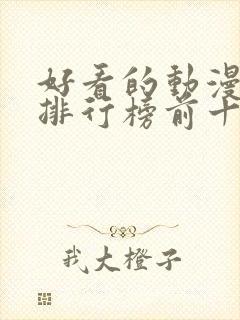 好看的動漫
排行榜前十
我大橙子